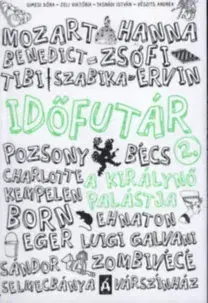 GIMESI DÓRA · JELI VIKTÓRIA · TASNÁDI ISTVÁN · VÉSZITS ANDREA
MOZART HANNA
BENEDICT ZSÓFI
TIBI SZABIKA ERVIN
IDŐFUTÁR
POZSONY BÉCS 2.
CHARLOTTE A KIRÁLYNŐ
KEMPELEN PALÁSTJA
BORN EHNATON
EGER LUIGI GALVANI
SÁNDOR ZOMBIVÉCÉ
SELMECBÁNYA VÁRSZÍNHÁZ